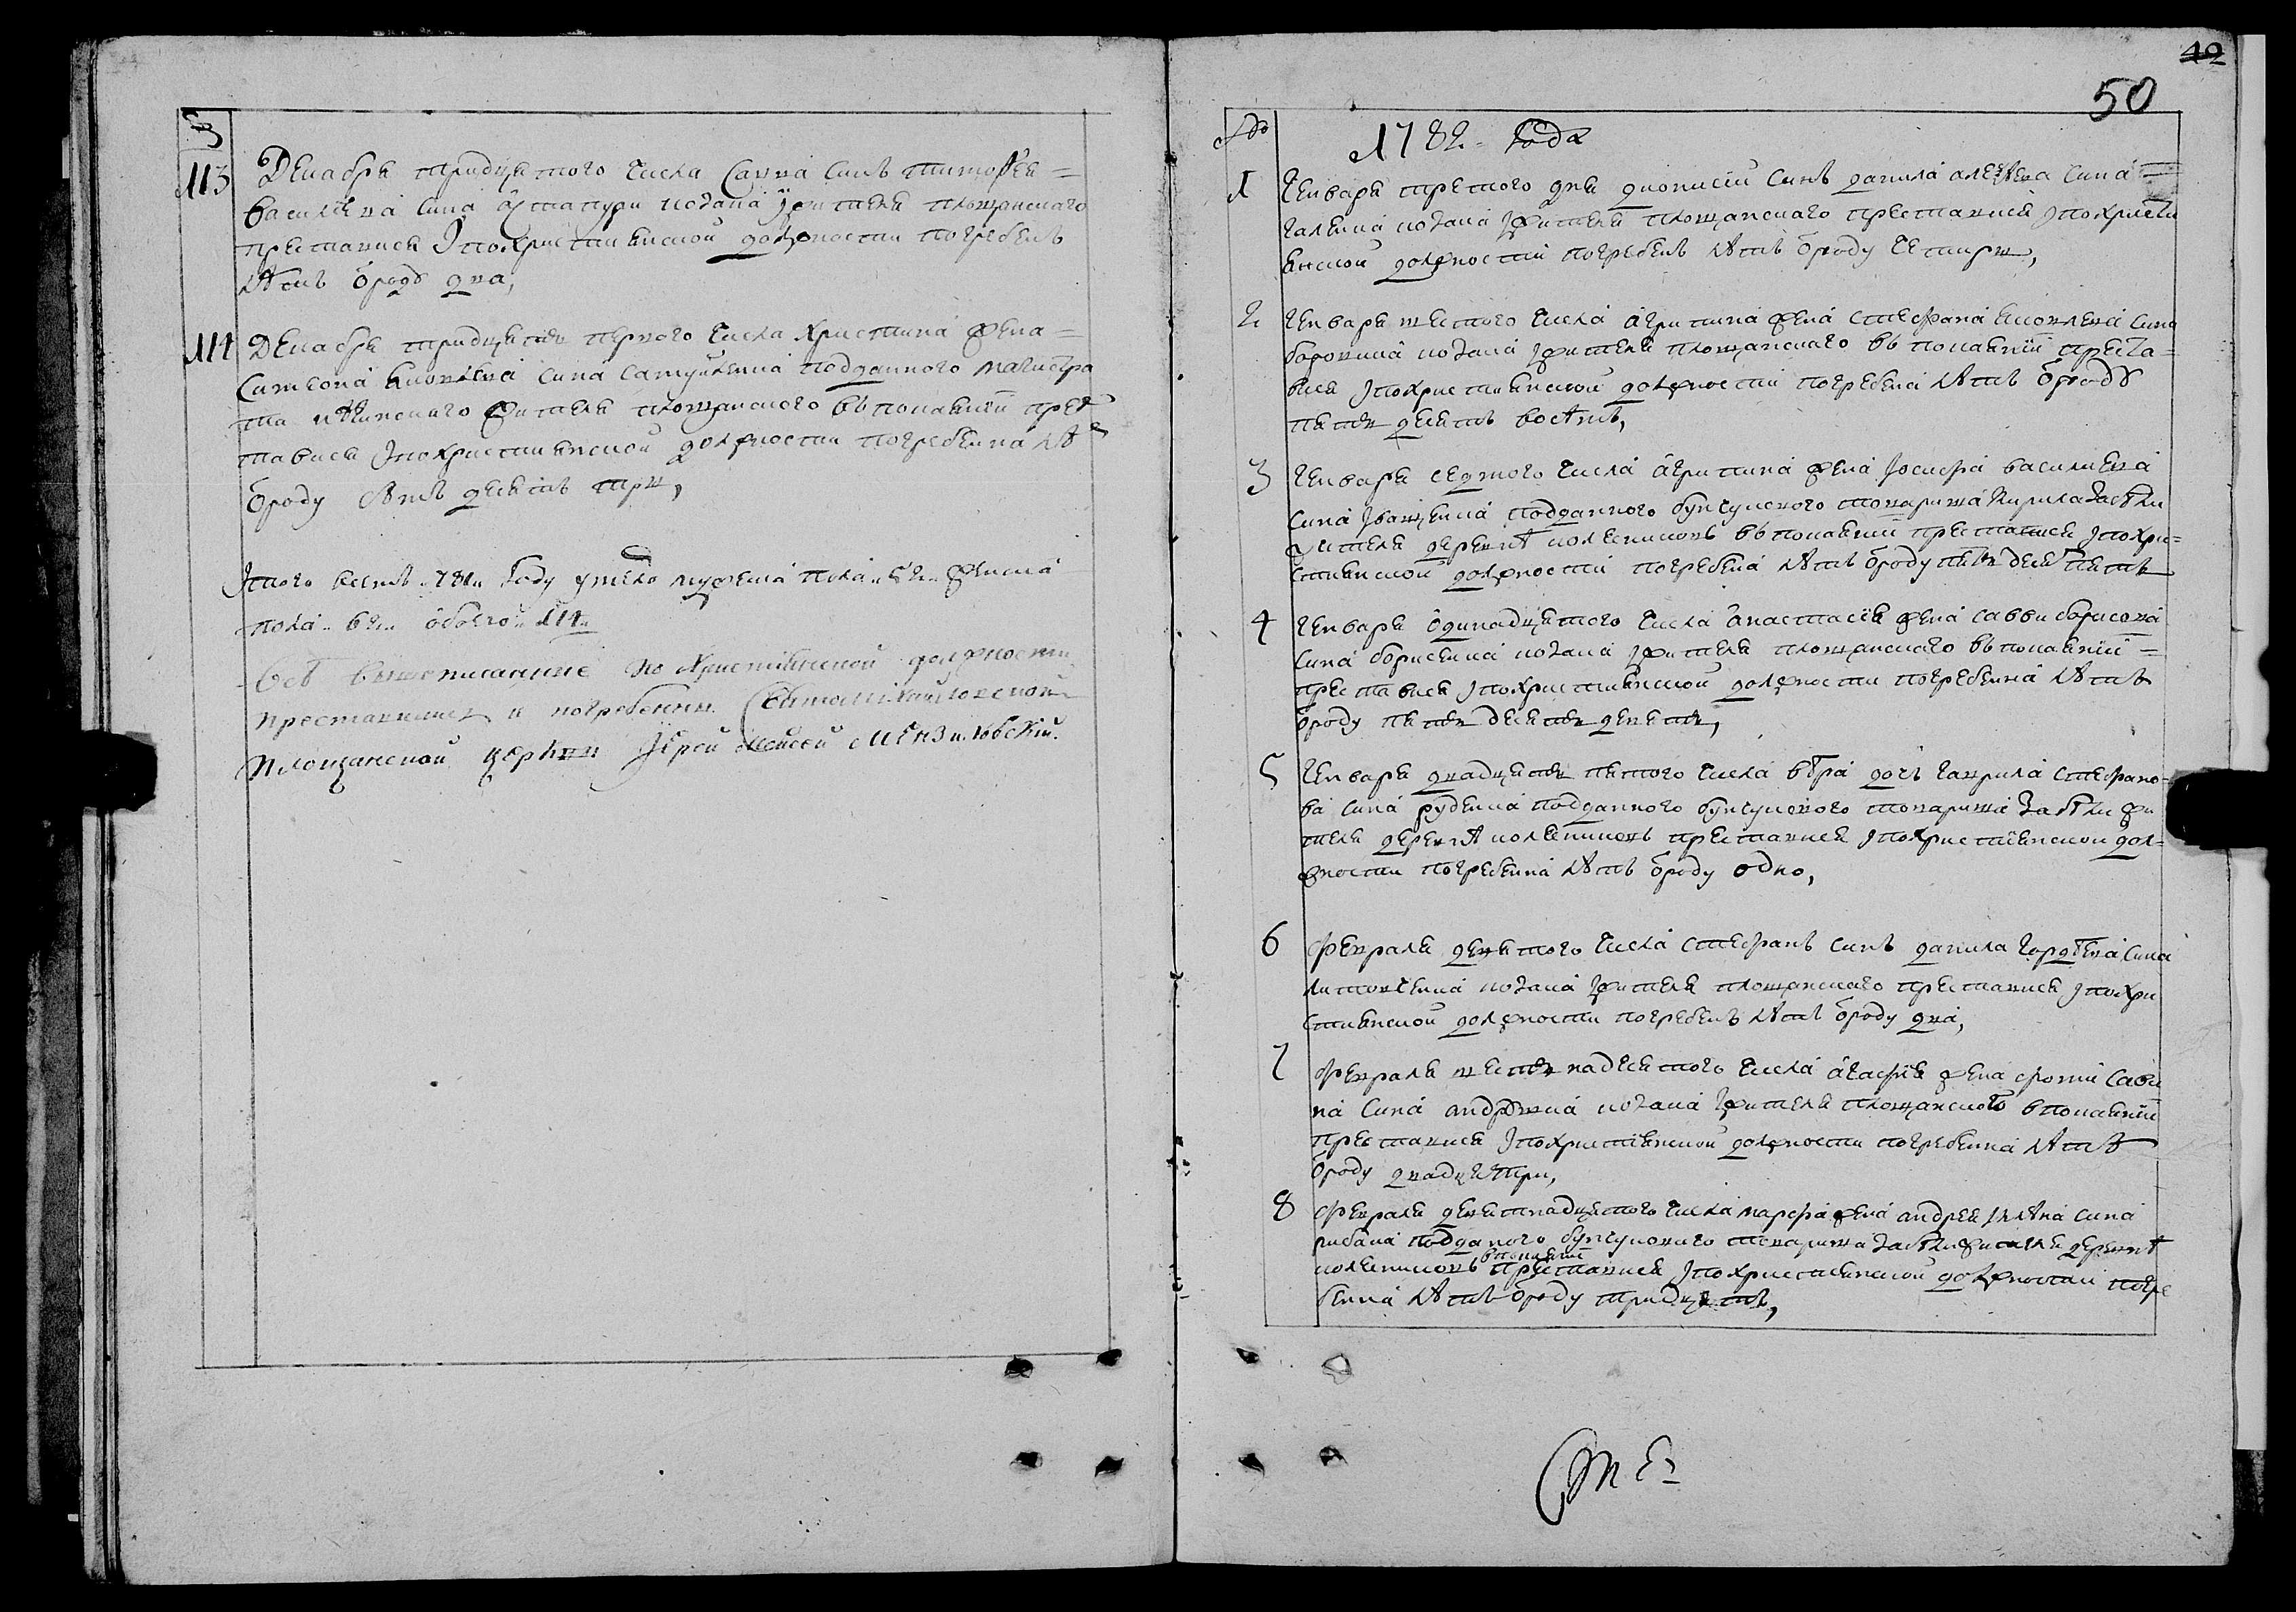 113
Декабря тридцятого числа Савва синъ тимофея =
василіева сина астапури козака жителя площанского
преставися Ипохристиянской должности погребенъ
лѣтъ ѿроду два,
114 Декабря тридцять первого числа христина жена =
симеона яковлева сина подданного магистра
та нѣжинского жителя площанского въ покаянїи пре
тавися Ипохристиянской должности погребенна лѣ
ѿроду лѣтъ десять три,
Итого всехъ 781 году умерло мужеска пола 52 женска
пола 62 обоего 114
всѣ вишеписанние по християнской должности
преставились и погребенни Святомихайловской
площанской церкви Іерей Моисей
50
1782 Года
1 Генваря третого дня дионисій синъ данила алексѣева сина =
галенка козака жителя площанского преставися Ипохристи
янской должности погребенъ лѣтъ ѿроду четири,
2 Генваря шестого числа агрипина жена стефана яковлева сина
козака жителя площанского въ покаянїи преста=
вися Ипохристиянской должности погребена лѣтъ ѿроду
пять десять восѣмъ,
3 Генваря седмого числа агрипина жена Иосифа василиева
сина Иващенка подданного бунчукового товариша Кирила Заѣзки
жителя деревнѣ колесниковъ въ покаянїи преставися Ипохри=
стиянской должности погребена лѣтъ ѿроду пять десять пять
4 Генваря одинадцятого числа анастасія жена саввы борисова
сина борисенка козака жителя площанского въ покаянїи =
преставися Ипохристиянской должности погребенна лѣтъ
ѿроду пять десять девять,
5 Генваря двадцять пятого числа вѣра дочъ гаврила стефано=
ва сина руденка подданного бунчукового товариша Заѣзки жи
теля деревнѣ колесниковъ преставися Ипохристіянской дол=
жности погребенна лѣтъ ѿроду одно,
6 февраля девятого числа стефанъ синъ данила гордѣева сина
литовченка козака жителя площанского преставися Ипохри
стиянской должности погребенъ лѣтъ ѿроду два,
7 февраля шесть надцятого числа агафія жена фомы сави
на сина козака жителя площанского в покаянїи
преставися Ипохристіянской должности погребенна лѣтъ
ѿроду двадцять три,
8 февраля девятнадцятого числа марфа жена андрея сина
подданого бунчукового товариша Заѣзки жителя деревнѣ
колесниковъ в покаянїи преставися Ипохристиянской должности погре
бенна лѣтъ ѿроду тридцять,